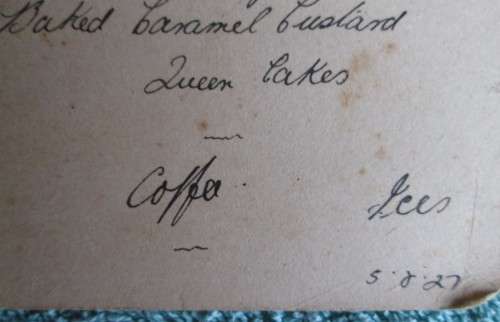 Baked Caramel Custard
Queen Cakes
Coffee Ices
5.8.27